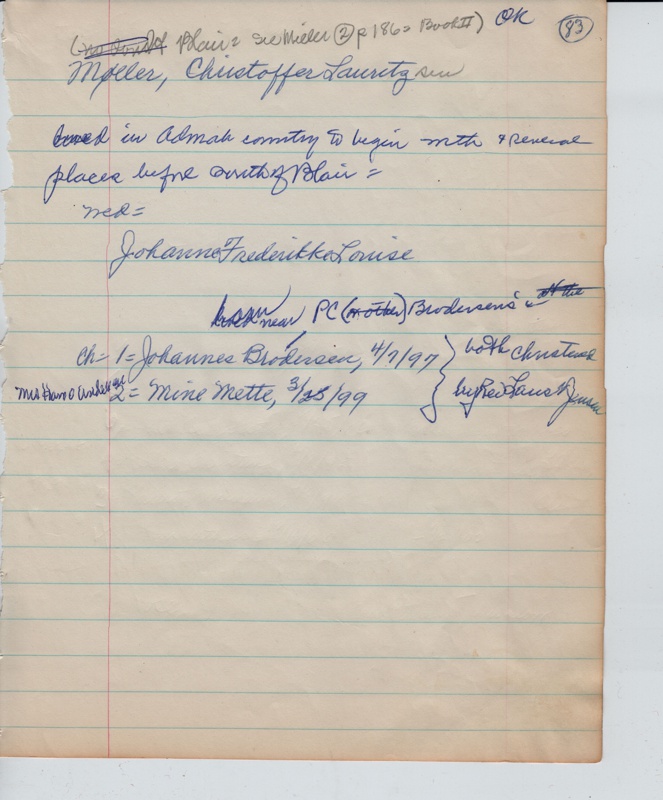 Blair = see Miller ② p 186 = Book II) OK 83
Møller, Christoffer Lauritz sen
in Admah country to begin with & several
places before south of Blair =
md =
Johanne Frederikke Louise
born near PC (mother) Brodersens
ch = 1 = Johannes Brodersen, 4/7/97 } both christened
Mrs Hans Andersen 2 = Mine Mette, 3/25/99 by Rev Laust Jensen